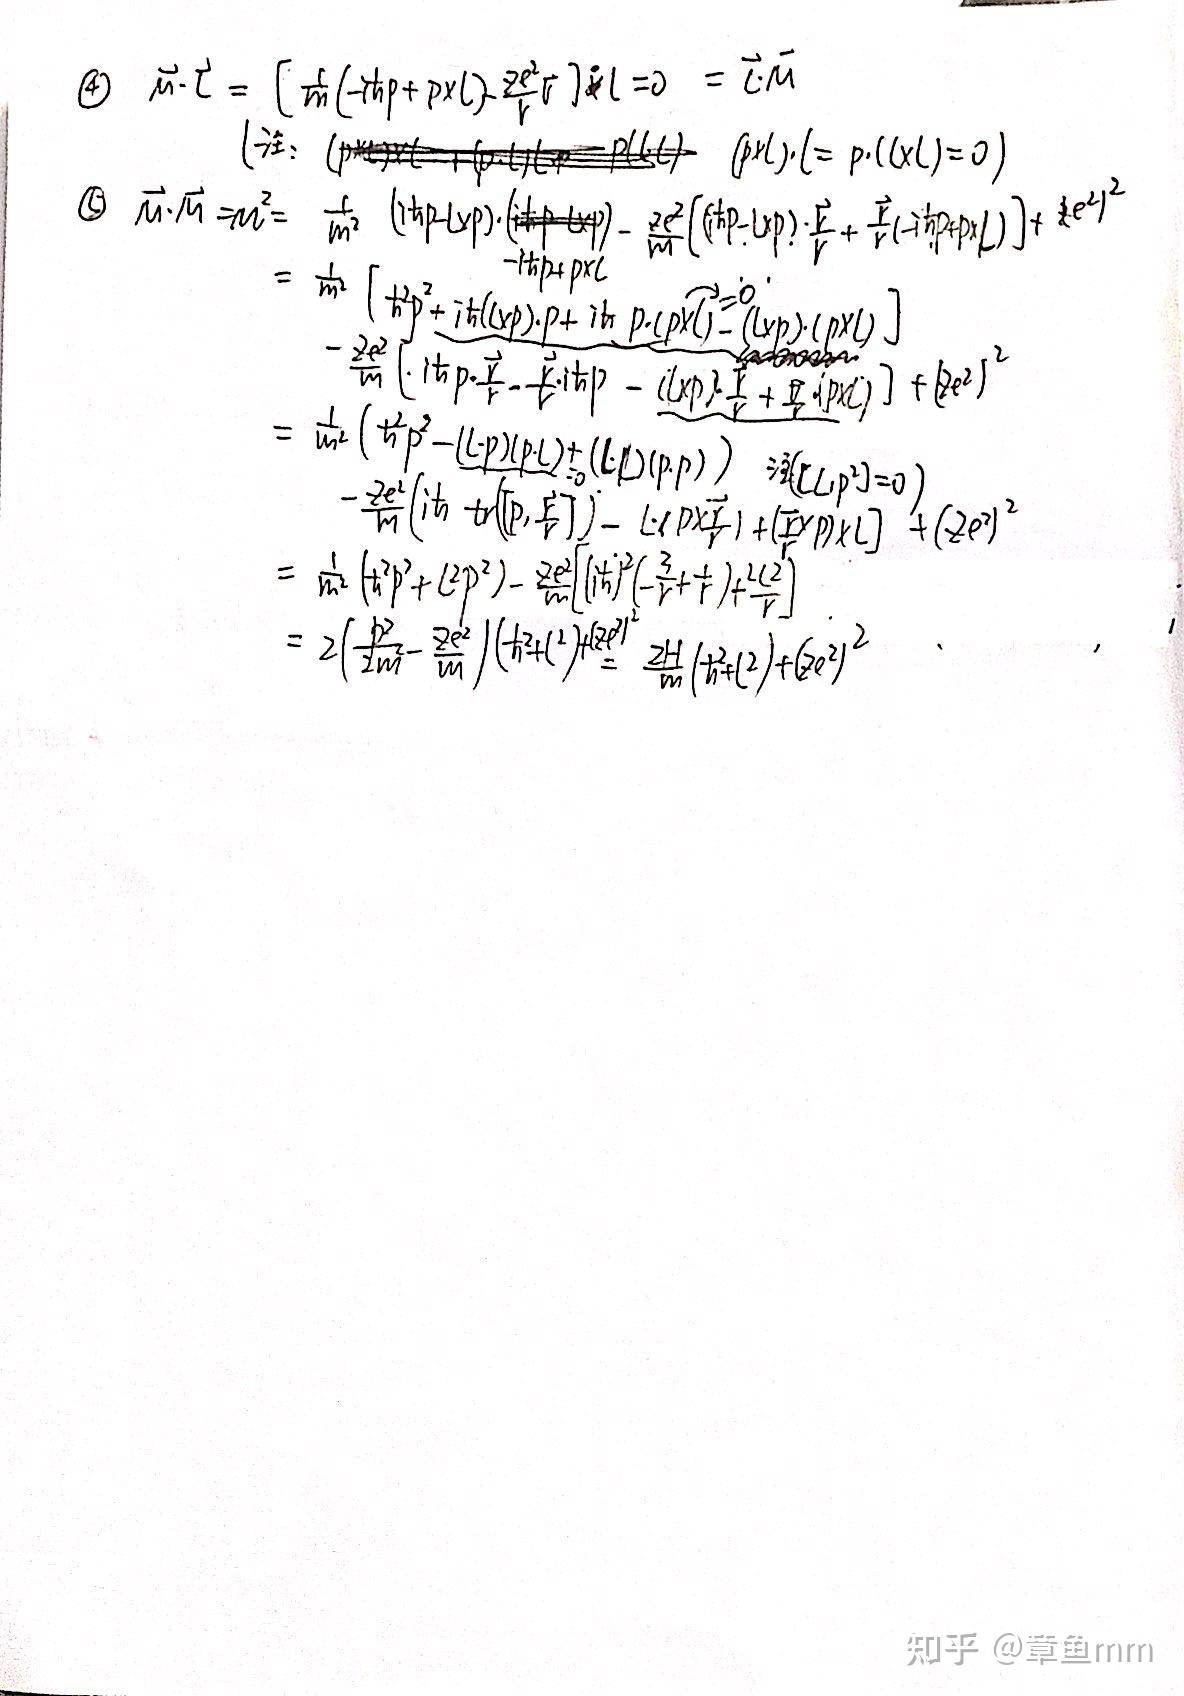 ④ M⃗·L⃗ = [ 1/m (-iħp + p×L) - Ze²/r r⃗ ]·L = 0 = L⃗·M⃗
(注: (p×L)·L = p·(L×L) = 0)
⑤ M⃗·M⃗ = M² = 1/m² (iħp - L×p)·(-iħp + p×L) - Ze²/m [(iħp - L×p)·r⃗/r + r⃗/r(-iħp + p×L)] + (Ze²)²
= 1/m² [ħ²p² + iħ(L×p)·p + iħ p·(p×L) = 0 - (L×p)·(p×L)]
- Ze²/m [iħp·r⃗/r - r⃗/r·iħp - (L×p)·r⃗/r + r⃗/r·(p×L)] + (Ze²)²
= 1/m² (ħ²p² - (L·p)(p·L) =0 + (L·L)(p·p)) 注([L,p²]=0)
- Ze²/m (iħ tr([p, r⃗/r]) - L·(p×r⃗/r) + (r⃗/r×p)×L] + (Ze²)²
= 1/m² (ħ²p² + L²p²) - Ze²/m [(iħ)²(-3/r + 1/r) + 2L²/r]
= 2(p²/2m² - Ze²/m)(ħ² + L²) + (Ze²)² = 2H/m (ħ² + L²) + (Ze²)²
知乎 @章鱼mm